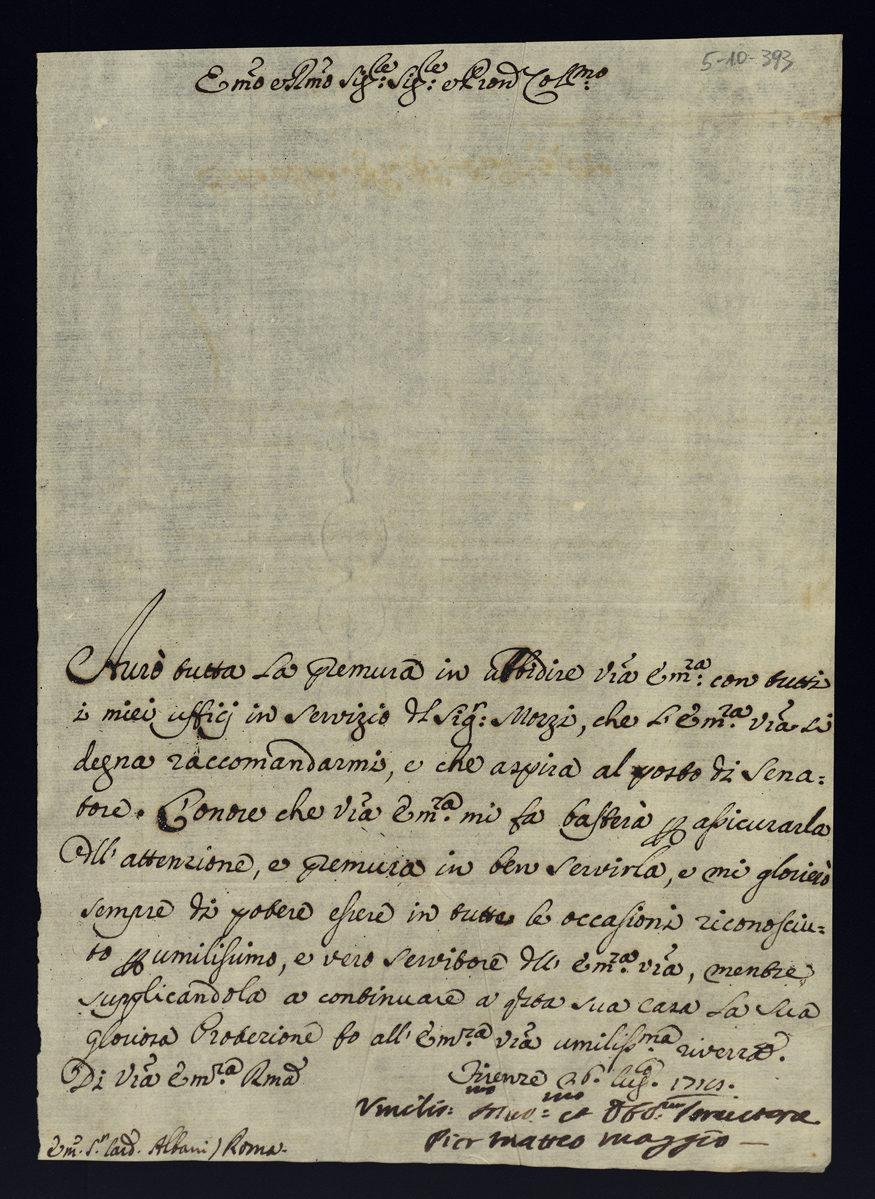 5-10-393
Emo e Rmo Sigle: Sigle: e Pron Collmo:
Aurò tutta la premura in ubbidire Vra Emza: con tutti
i miei uffizj in servizio dl Sigr: Mozzi, che l'Emza: Vra si
degna raccomandarmi, e che aspira al posto di Sena=
tore. L'onore che Vra Emza: mi fa basterà p assicurarla
dll' attenzione, e premura in ben servirla, e mi glorierò
sempre di potere essere in tutte le occasioni riconosciu=
to p umilissimo, e vero servitore dll' Emza: Vra, mentre
supplicandola a continuare a qsta sua casa la sua
gloriosa Protezione fo all' Emza Vra umilissma: riverza.
Di Vra Emza: Rma
Firenze 26. lug:
Vmilis:mo et
Pier Matteo Maggio
Emo: Sr Card. Albani / Roma.